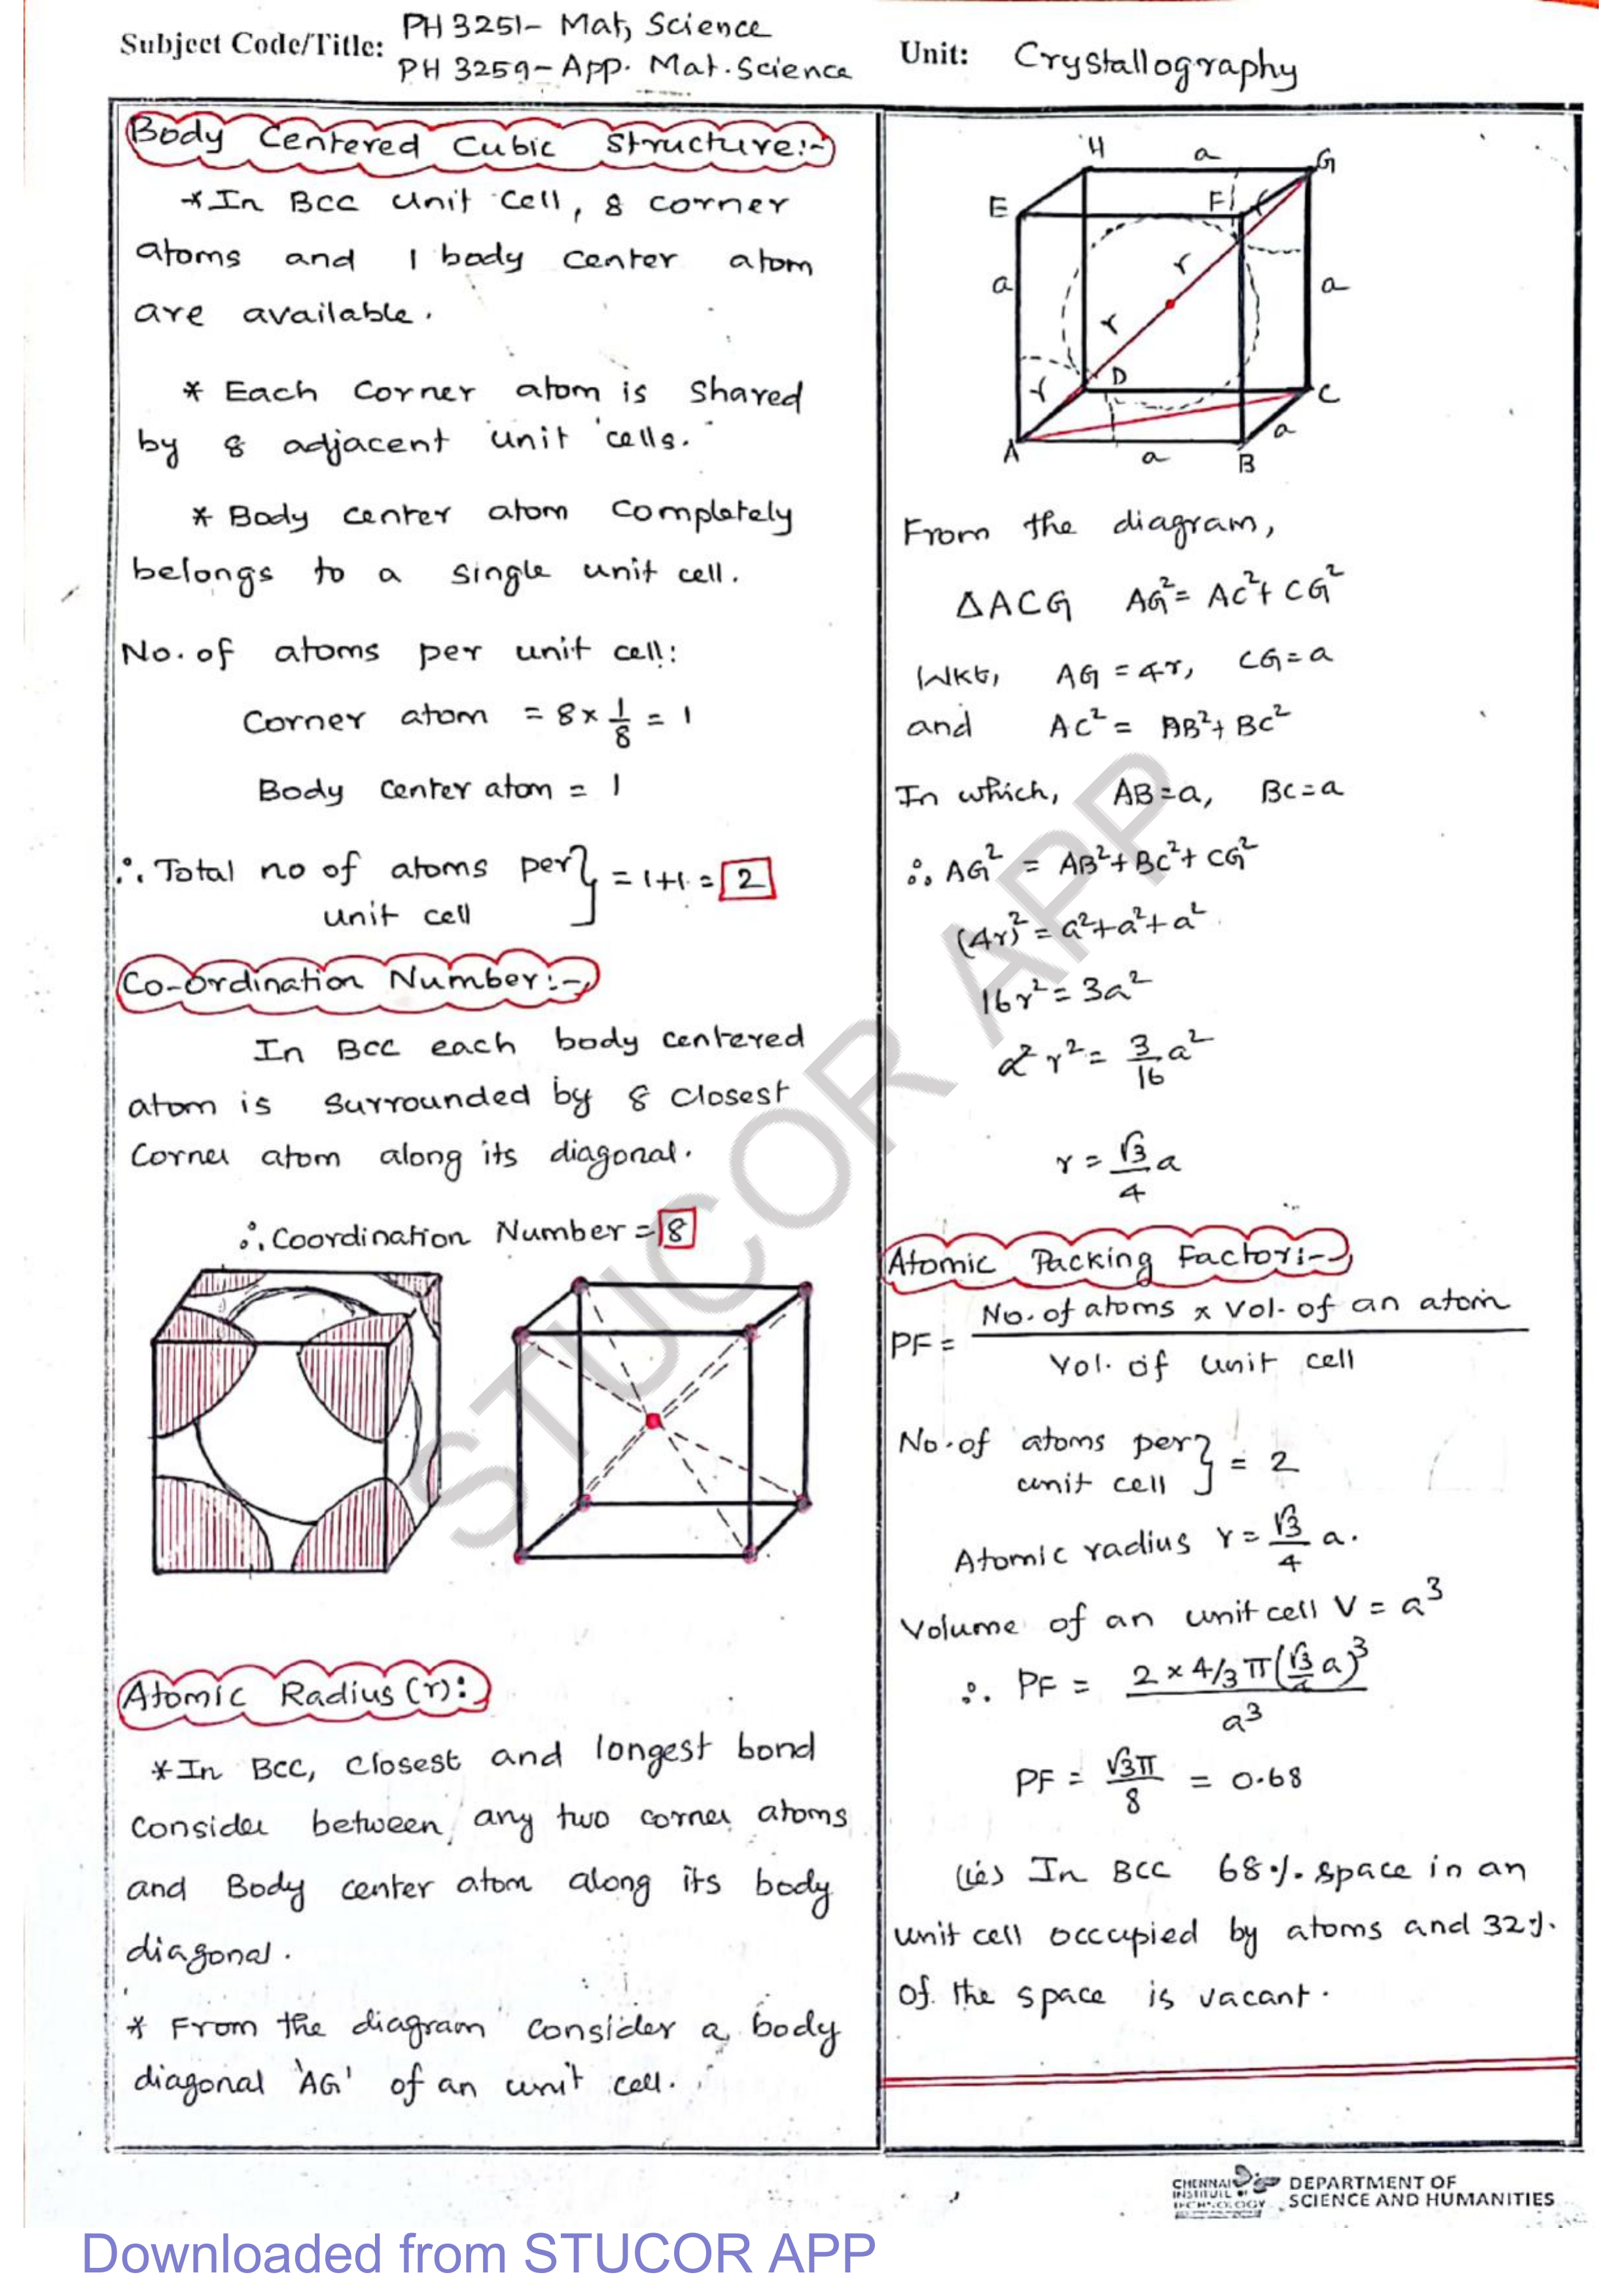 Subject Code/Title: PH 3251- Mat, Science
PH 3259-App. Mat. Science
Unit: Crystallography
Body Centered Cubic Structure:-
*In Bcc unit cell, 8 corner
atoms and 1 body center atom
are available.
* Each Corner atom is Shared
by 8 adjacent unit cells.
* Body center atom Completely
belongs to a single unit cell.
No. of atoms per unit cell:
Corner atom = 8 × 1/8 = 1
Body center atom = 1
∴ Total no of atoms per } = 1+1 = 2
unit cell
Co-ordination Number:-
In Bcc each body centered
atom is Surrounded by 8 closest
Corner atom along its diagonal.
∴ Coordination Number = 8
Atomic Radius (r):
*In BCC, closest and longest bond
Consider between any two corner atoms
and Body center atom along its body
diagonal.
* From the diagram consider a body
diagonal 'AG' of an unit cell.
H a G
E F r
a r a
r
r D C
a
A a B
From the diagram,
ΔACG AG² = AC² + CG²
WKt, AG = 4r, CG = a
and AC² = AB² + BC²
In which, AB = a, BC = a
∴ AG² = AB² + BC² + CG²
(4r)² = a² + a² + a²
16r² = 3a²
r² = 3/16 a²
r = √3/4 a
Atomic Packing Factor:-
PF = No. of atoms x Vol. of an atom
Vol. of unit cell
No. of atoms per } = 2
unit cell
Atomic radius r = √3/4 a.
Volume of an unit cell V = a³
∴ PF = 2 × 4/3 π (√3/4 a)³
a³
PF = √3π/8 = 0.68
(ie) In BCC 68% space in an
unit cell occupied by atoms and 32%
of the space is vacant.
STUCOR APP
CHENNAI
INSTITUTE OF
TECHNOLOGY
DEPARTMENT OF
SCIENCE AND HUMANITIES
Downloaded from STUCOR APP